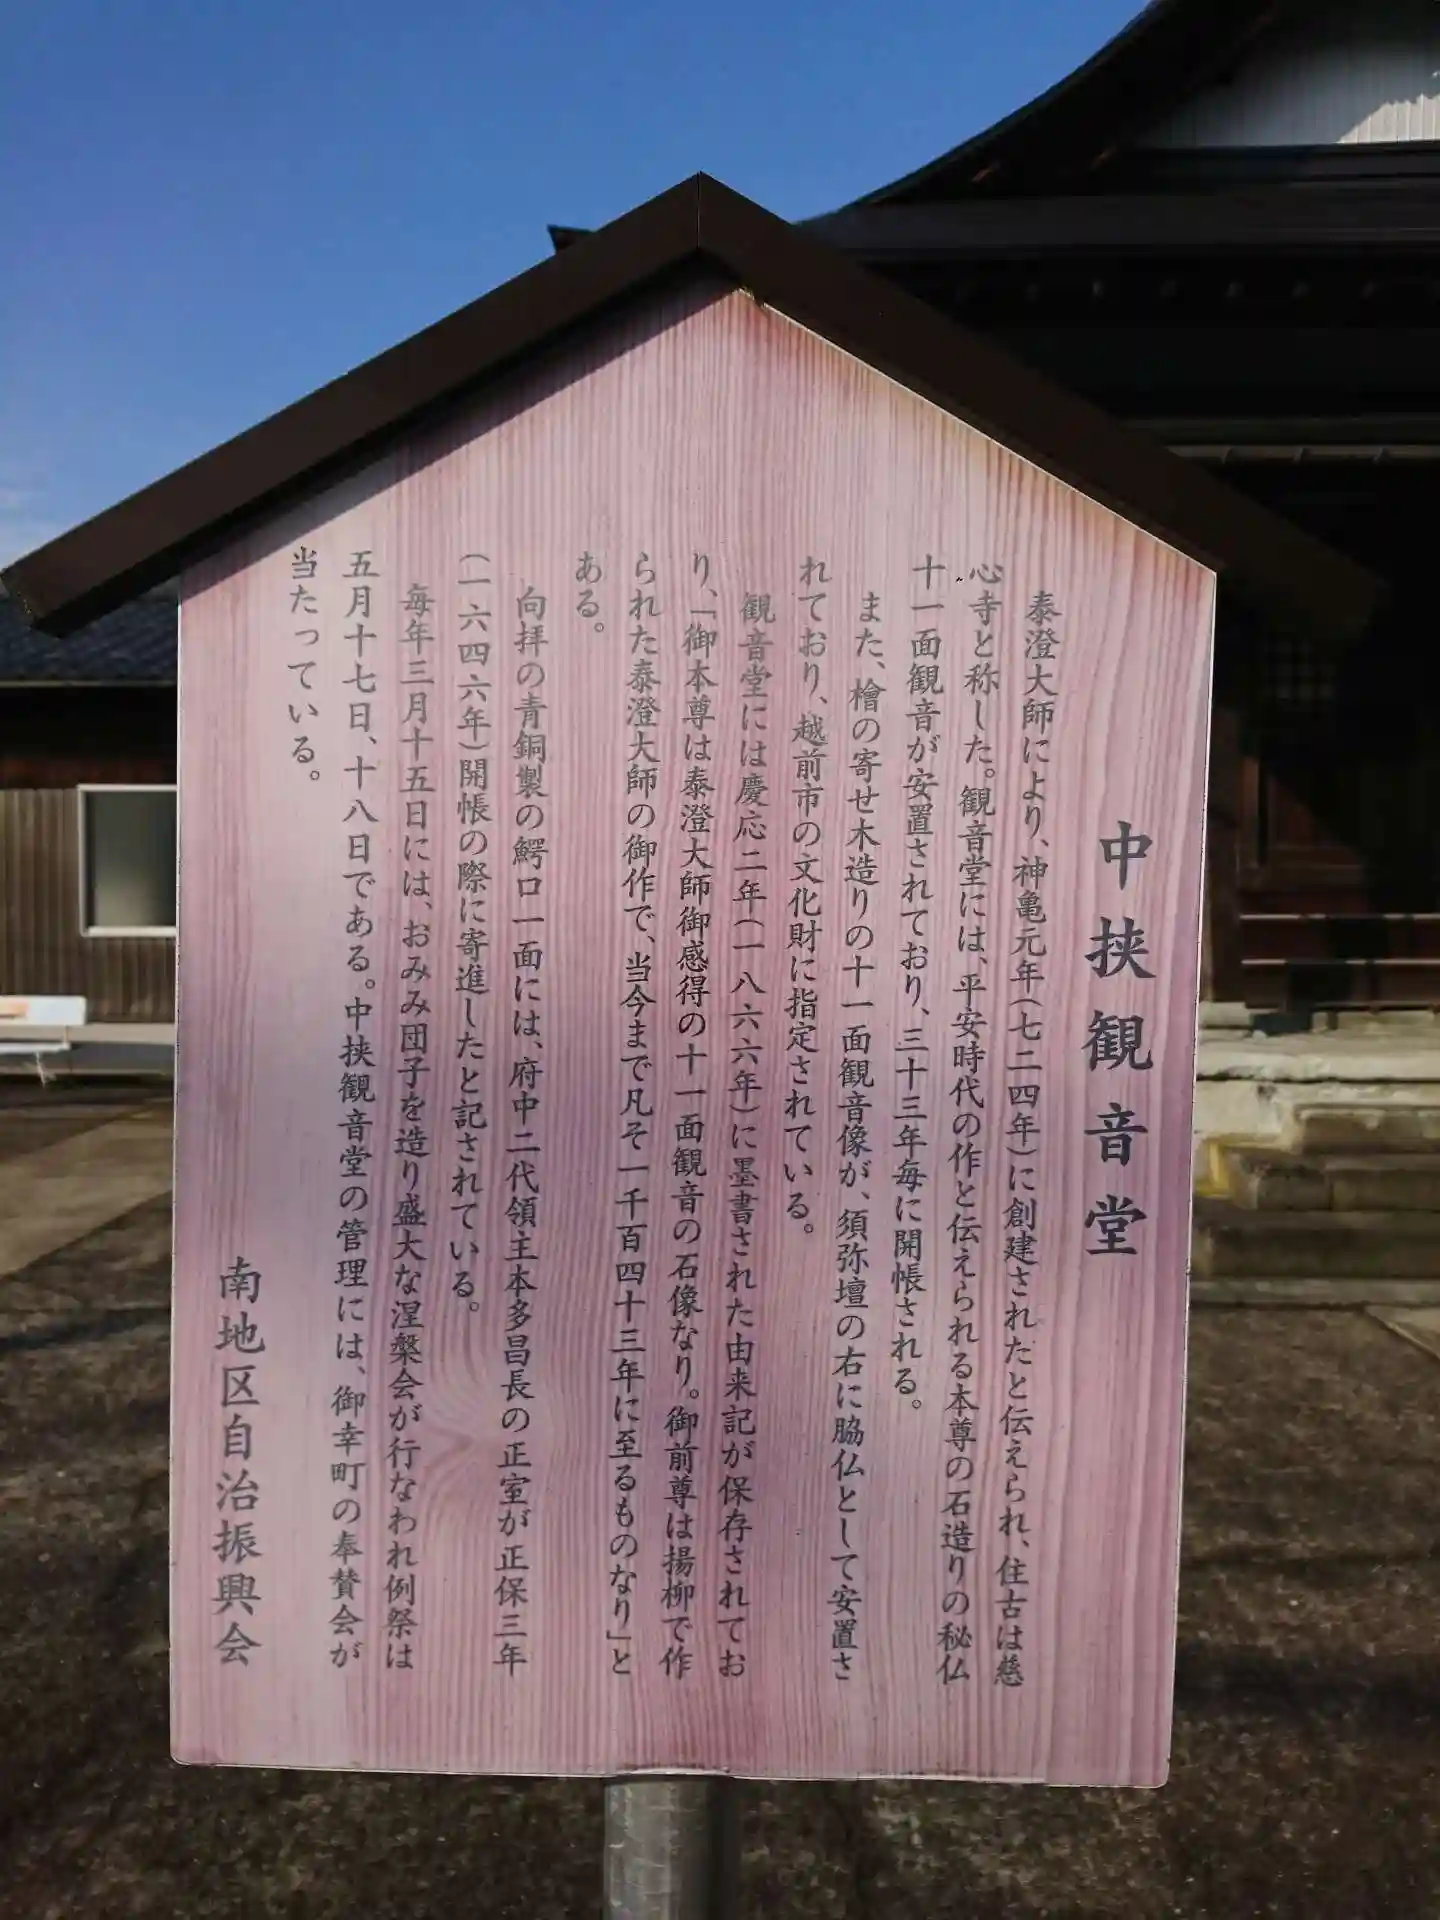 中挟観音堂
泰澄大師により、神亀元年(七二四年)に創建されたと伝えられ、住古は慈
心寺と称した。観音堂には、平安時代の作と伝えられる本尊の石造りの秘仏
十一面観音が安置されており、三十三年毎に開帳される。
また、檜の寄せ木造りの十一面観音像が、須弥壇の右に脇仏として安置さ
れており、越前市の文化財に指定されている。
観音堂には慶応二年(一八六六年)に墨書された由来記が保存されてお
り、「御本尊は泰澄大師御感得の十一面観音の石像なり。御前尊は揚柳で作
られた泰澄大師の御作で、当今まで凡そ一千百四十三年に至るものなり」と
ある。
向拝の青銅製の鰐口一面には、府中二代領主本多昌長の正室が正保三年
(一六四六年)開帳の際に寄進したと記されている。
毎年三月十五日には、おみみ団子を造り盛大な涅槃会が行なわれ例祭は
五月十七日、十八日である。中挟観音堂の管理には、御幸町の奉賛会が
当たっている。
南地区自治振興会